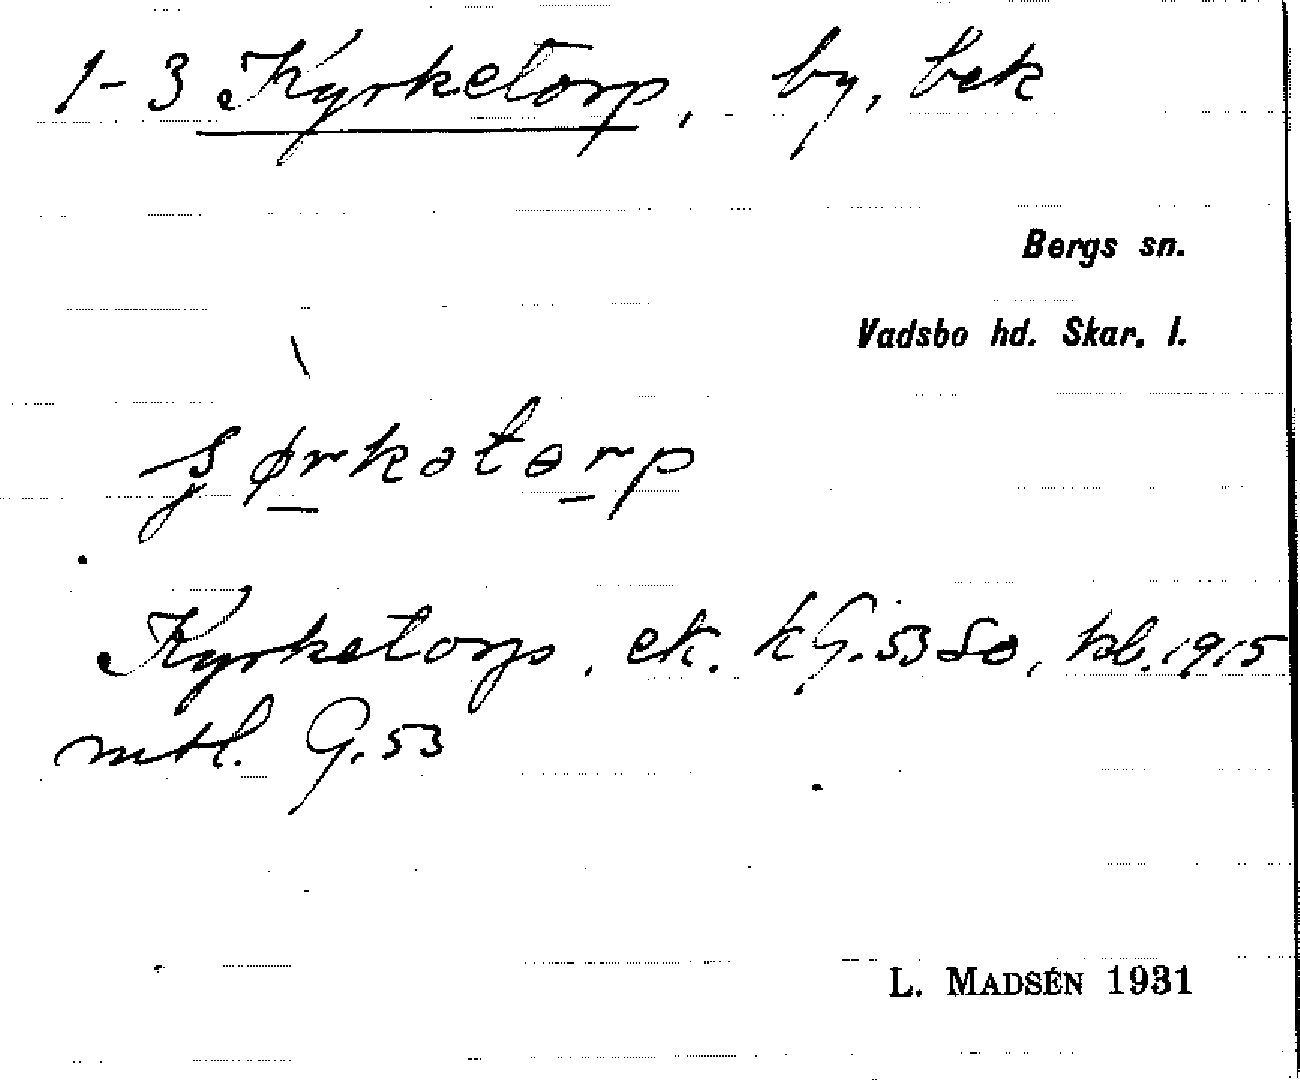 1-3 Kyrketorp, by, bek
Bergs sn.
Vadsbo hd. Skar. l.
Kyrketorp, ek. kG.53So, kb.1915
mtl. G.53
L. MADSÉN 1931